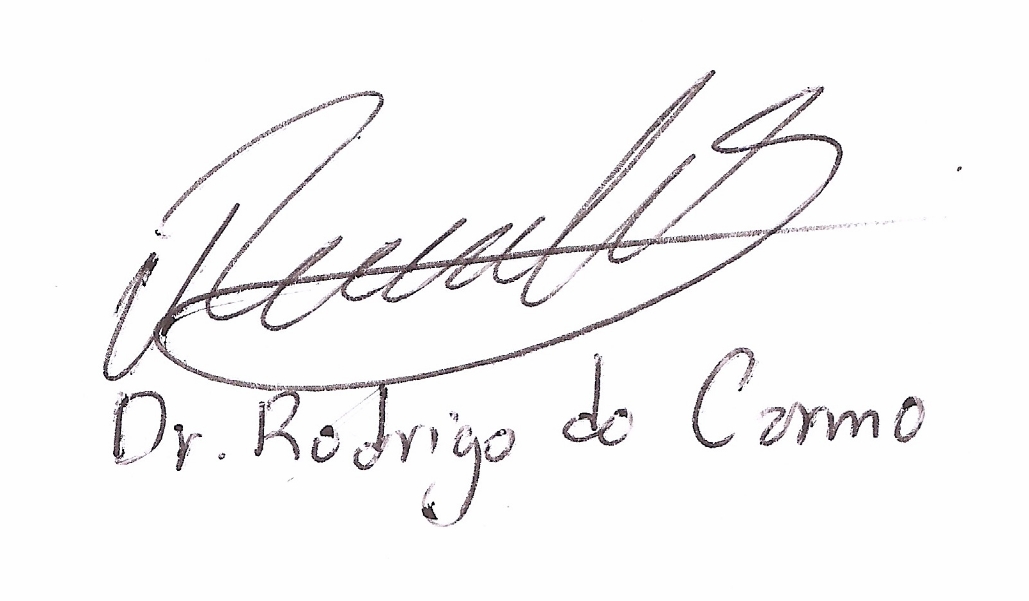 Dr. Rodrigo do Carmo